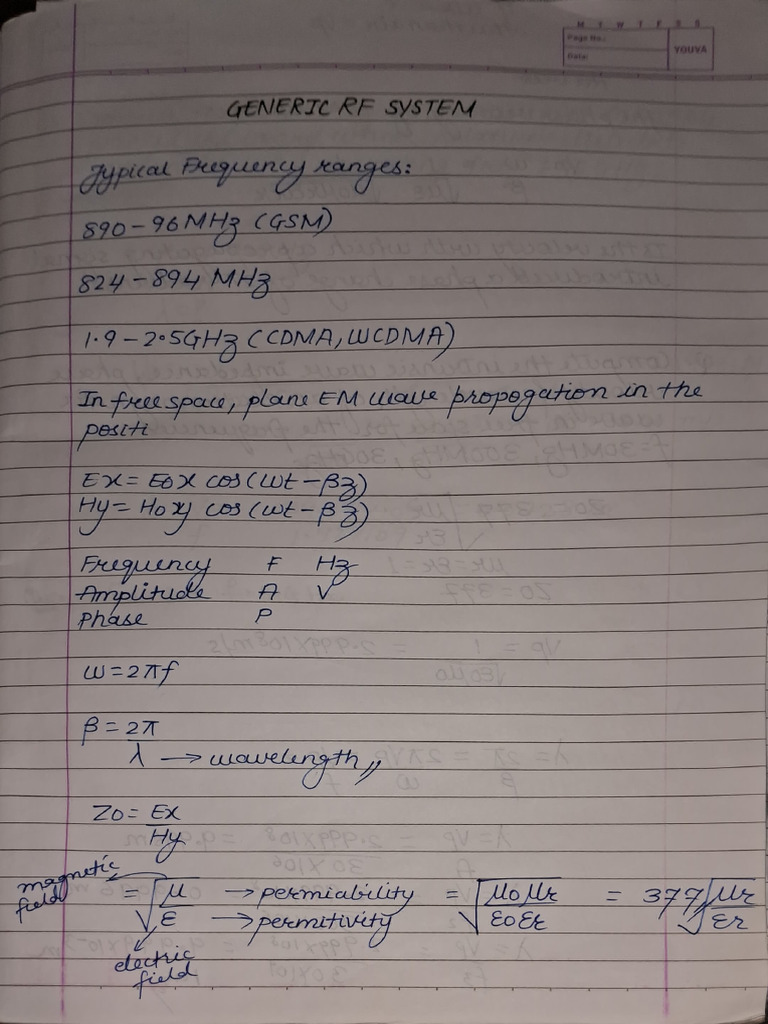 M T W T F S S
Page No.:
Date:
YOUVA
GENERIC RF SYSTEM
Typical Frequency ranges:
890-96 MHz (GSM)
824-894 MHz
1.9-2.5GHz (CDMA, WCDMA)
In free space, plane EM wave propogation in the
positi
Ex = Eox cos(wt-βz)
Hy = Hoy cos(wt-βz)
Frequency F Hz
Amplitude A V
Phase P
ω=2πf
β = 2π
λ → wavelength,,
Zo = Ex
Hy
magnetic
field
= √μ → permiability = √μoμr = 377√μr
ε → permitivity εoεr εr
electric
field